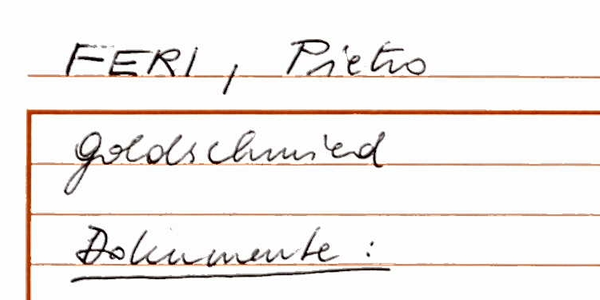 FERI, Pietro
Goldschmied
Dokumente: